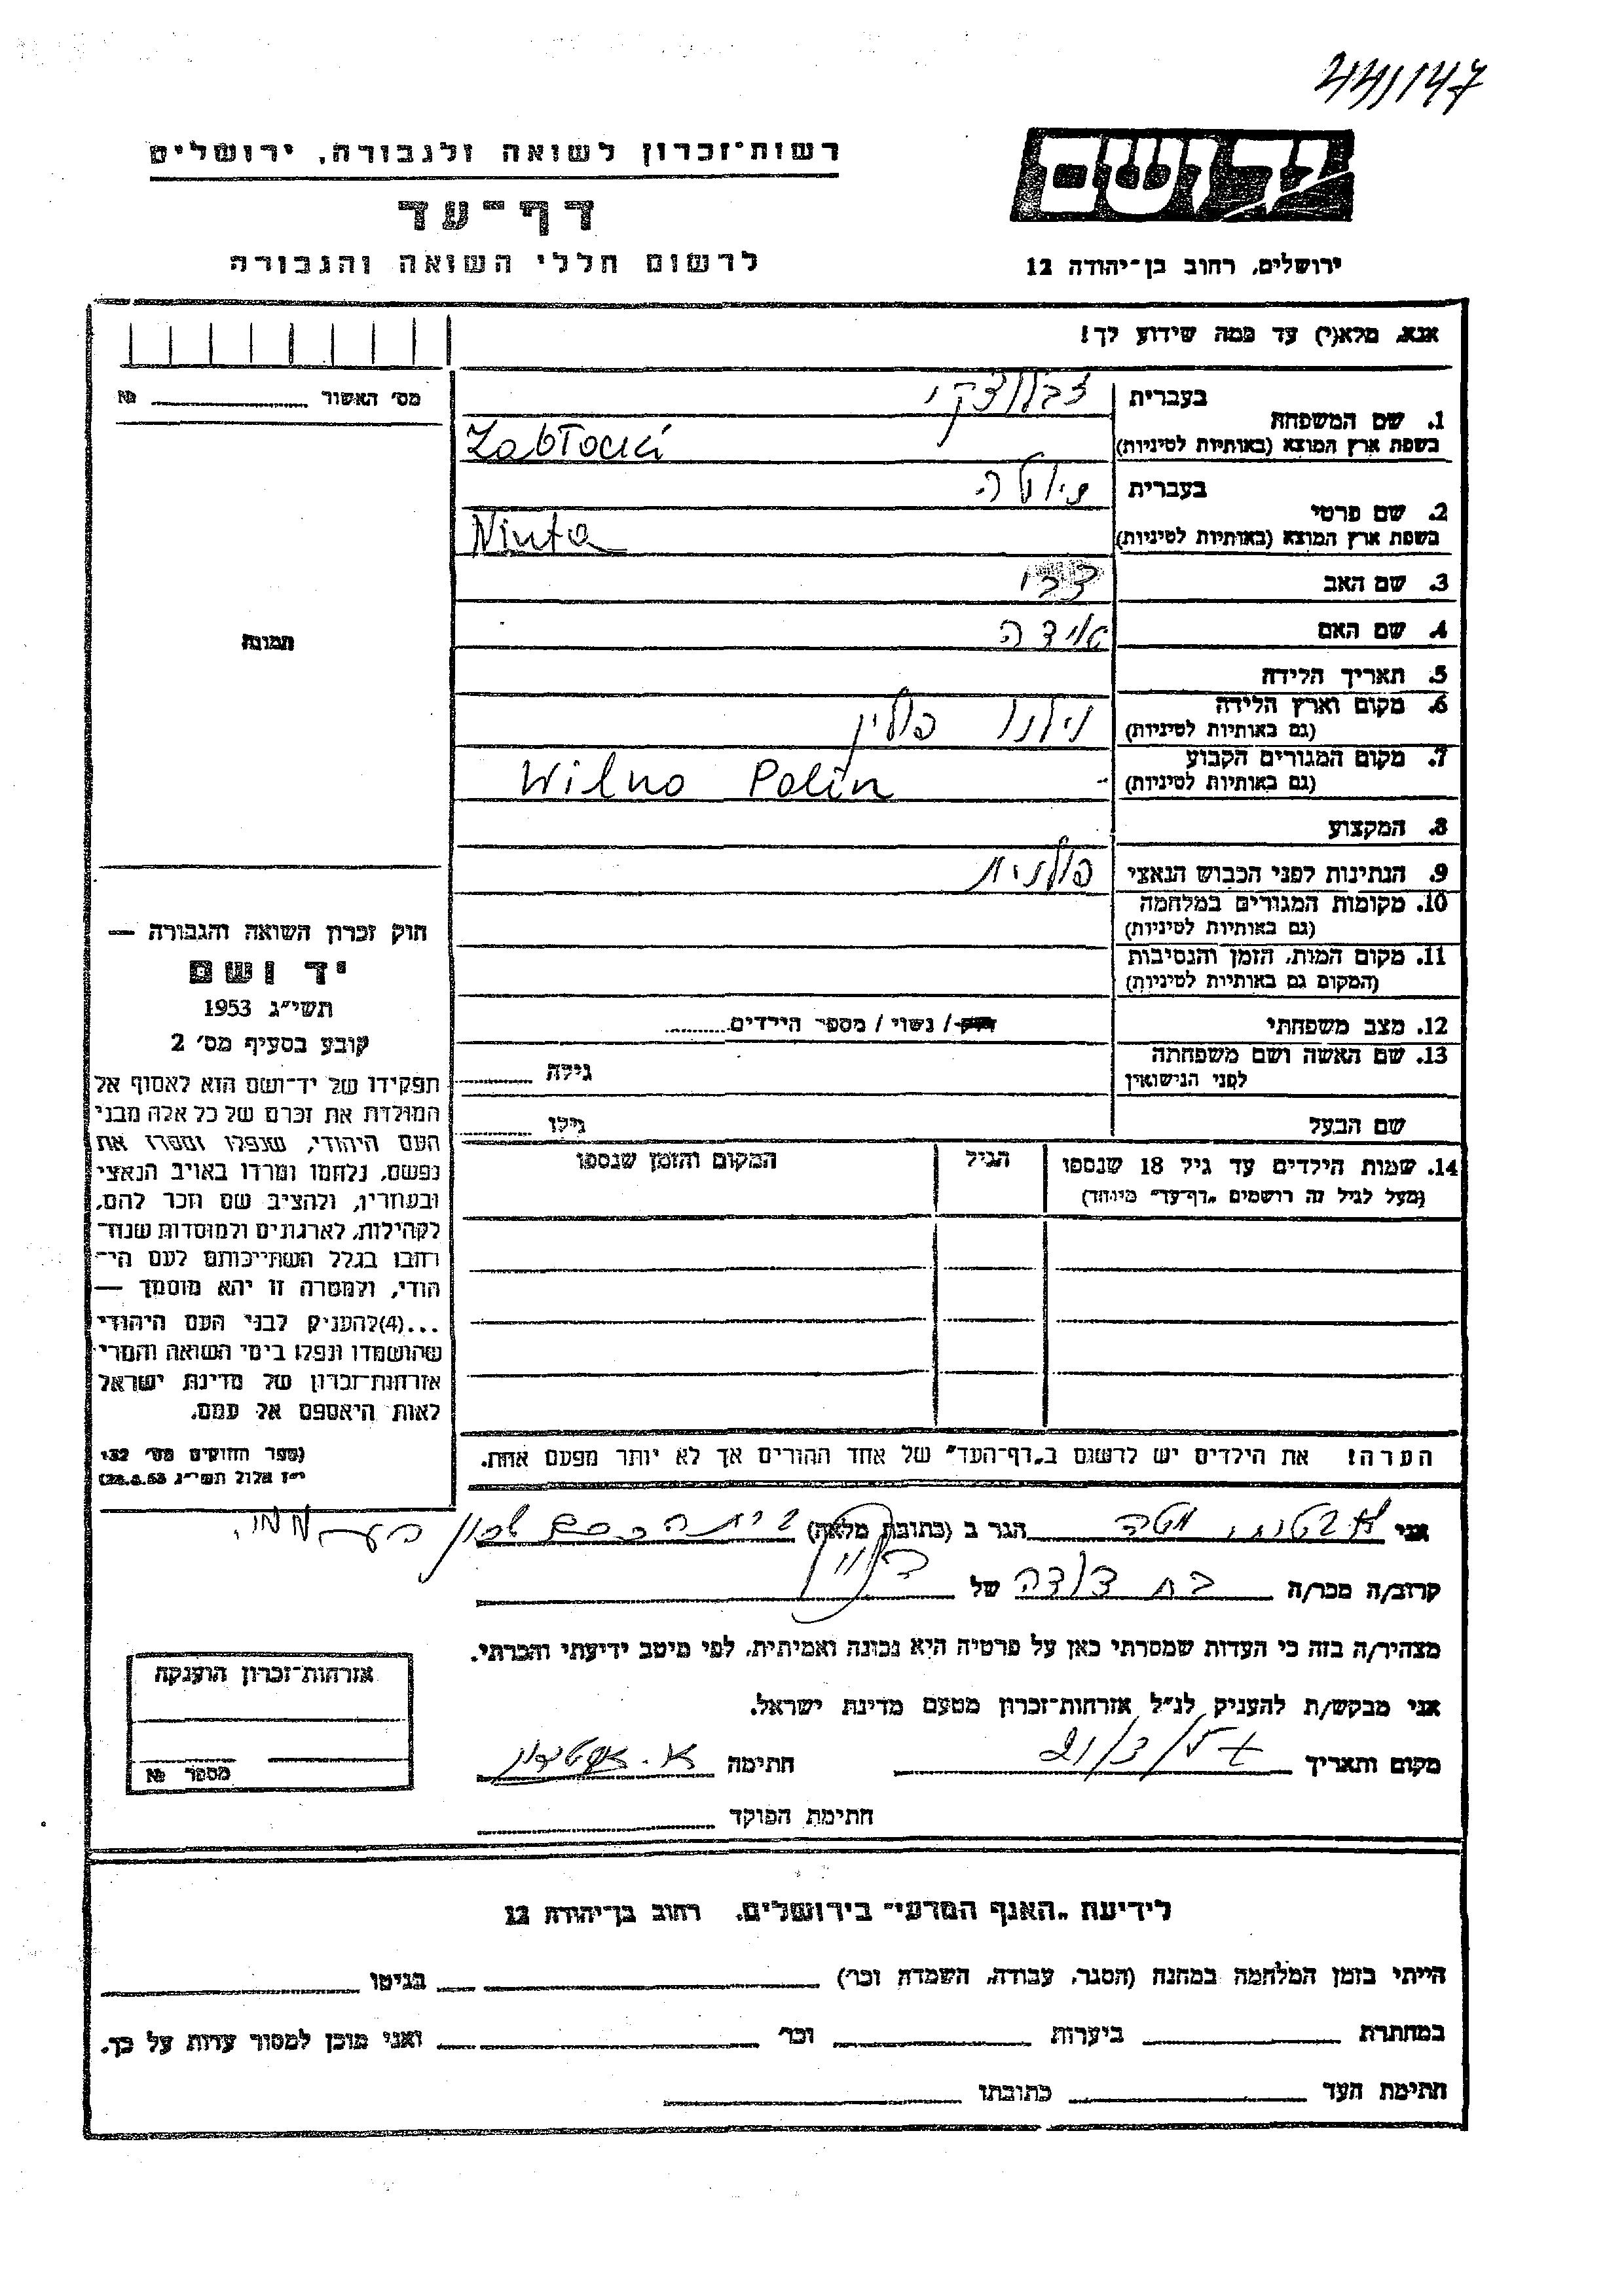 44/147
רשות־זכרון לשואה ולגבורה, ירושלים
יד ושם
דף־עד
לרשום חללי השואה והגבורה
ירושלים, רחוב בן־יהודה 12
אנא, מלא(י) עד כמה שידוע לך!
מס' האשור № 
1. שם המשפחה
בעברית זבלוצקי
בשפת ארץ המוצא (באותיות לטיניות) Zabłocki
2. שם פרטי
בעברית ניוטה
בשפת ארץ המוצא (באותיות לטיניות) Niuta
3. שם האב צבי
4. שם האם אידה
תמונה
5. תאריך הלידה
6. מקום וארץ הלידה
(גם באותיות לטיניות) וילנו פולין
7. מקום המגורים הקבוע
(גם באותיות לטיניות) Wilno Polin
8. המקצוע
9. הנתינות לפני הכבוש הנאצי פולנית
10. מקומות המגורים במלחמה
(גם באותיות לטיניות)
11. מקום המות, הזמן והנסיבות
(המקום גם באותיות לטיניות)
12. מצב משפחתי רווק / נשוי / מספר הילדים
13. שם האשה ושם משפחתה
לפני הנישואין גילה
שם הבעל גילו
14. שמות הילדים עד גיל 18 שנספו הגיל המקום והזמן שנספו
(מעל לגיל זה רושמים „דף־עד" מיוחד)
חוק זכרון השואה והגבורה —
יד ושם
תשי"ג 1953
קובע בסעיף מס' 2
תפקידו של יד־ושם הוא לאסוף אל
המולדת את זכרם של כל אלה מבני
העם היהודי, שנפלו ומסרו את
נפשם, נלחמו ומרדו באויב הנאצי
ובעוזריו, ולהציב שם וזכר להם,
לקהילות, לארגונים ולמוסדות שנח־
רובו בגלל השתייכותם לעם הי־
הודי, ולמטרה זו יהא מוסמך —
...(4)להעניק לבני העם היהודי
שהושמדו ונפלו בימי השואה והמרי
אזרחות־זכרון של מדינת ישראל
לאות היאספם אל עמם.
(ספר החוקים מס' 132,
י"ז אלול תשי"ג 28.8.53)
הערה! את הילדים יש לרשום ב„דף־העד" של אחד ההורים אך לא יותר מפעם אחת.
אני הגר ב (כתובת מלאה)
קרוב/ה מכר/ה בת דודה של
מצהיר/ה בזה כי העדות שמסרתי כאן על פרטיה היא נכונה ואמיתית, לפי מיטב ידיעתי והכרתי.
אני מבקש/ת להעניק לנ"ל אזרחות־זכרון מטעם מדינת ישראל.
מקום ותאריך חתימה
חתימת הפוקד
אזרחות־זכרון הוענקה
מספר №
לידיעת „האגף המדעי" בירושלים, רחוב בן־יהודה 12
הייתי בזמן המלחמה במחנה (הסגר, עבודה, השמדה וכו') בגיטו
במחתרת ביערות וכו' ואני מוכן למסור עדות על כך.
חתימת העד כתובתו